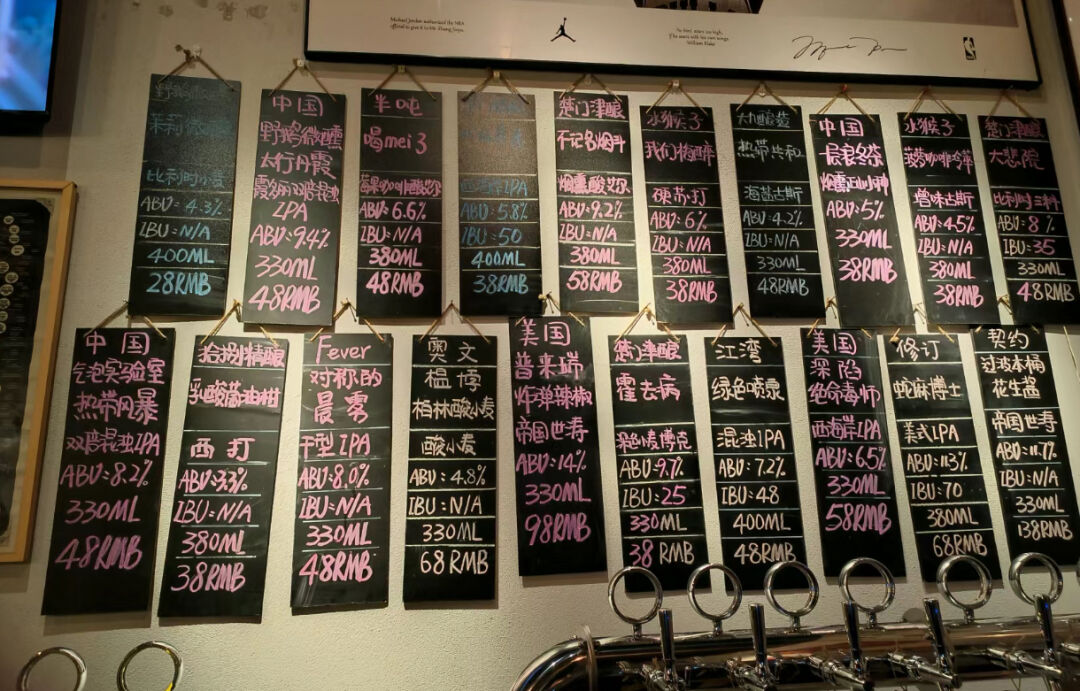 Michael Jordan authorized the NBA
official to give it to Mr Zhang Jiaya.
William Blake
茉莉微
比利时小麦
ABV:4.3%
IBU=N/A
400ML
28RMB
中国
野鹅微醺
太行丹霞
IPA
ABV:9.4%
330ML
48RMB
半吨
喝mei 3
莓果咖啡酸艾尔
ABV:6.6%
IBU:N/A
380ML
48RMB
西海岸IPA
ABV:5.8%
IBU:50
400ML
38RMB
楚门津酿
不记名烟斗
烟熏酸艾尔
ABV:9.2%
IBU:N/A
380ML
58RMB
水猴子
我们梅醉
硬苏打
ABV:6%
IBU:N/A
380ML
38RMB
大九酿造
热带共和
海盐古斯
ABV:4.2%
IBU=N/A
330ML
48RMB
中国
烟熏正山小种
ABV:5%
330ML
38RMB
水猴子
增味古斯
ABV:4.5%
IBU:N/A
380ML
38RMB
楚门津酿
大悲院
比利时三料
ABV:8%
IBU:35
330ML
48RMB
中国
气泡实验室
热带风暴
双倍混浊IPA
ABV:8.2%
330ML
48RMB
拾捌精酿
乳酸菌油柑
西打
ABV:3.3%
IBU:N/A
380ML
38RMB
Fever
对称的
晨雾
干型IPA
ABV:8.0%
IBU:N/A
330ML
48RMB
奥文
榅博
柏林酸小麦
酸小麦
ABV:4.8%
IBU:N/A
330ML
68RMB
美国
普来瑞
炸弹辣椒
帝国世涛
ABV:14%
330ML
98RMB
楚门津酿
霍去病
小麦博克
ABV:9.7%
IBU:25
330ML
38RMB
江湾
绿色喷泉
混浊IPA
ABV:7.2%
IBU:48
400ML
48RMB
美国
深陷
绝命毒师
西海岸IPA
ABV:6.5%
330ML
58RMB
修订
蛇麻博士
美式IPA
ABV:11.3%
IBU:70
380ML
68RMB
契约
过波本桶
花生酱
帝国世涛
ABV:11.7%
IBU:N/A
330ML
138RMB